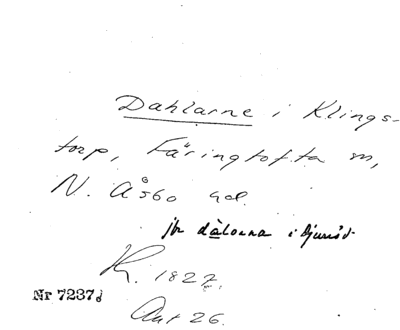 Dahlarne i Klings-
torp, Färingtofta sn,
N. Åsbo hd.
jfr dalorna i Djuröd
K. 1827.
Nr 7237d
Ant 26.